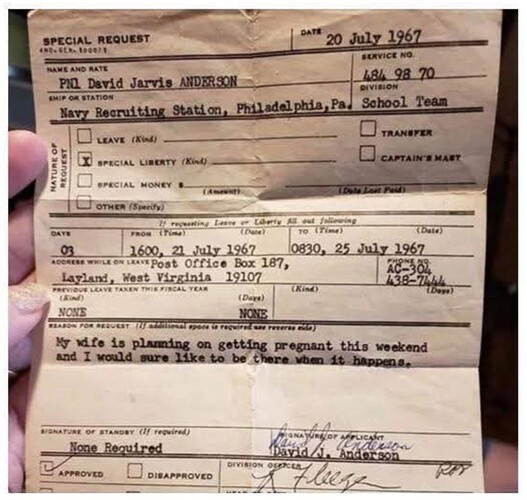 SPECIAL REQUEST
DATE 20 July 1967
NAME AND RATE
SERVICE NO.
PN1 David Jarvis ANDERSON
484 98 70
SHIP OR STATION
DIVISION
Navy Recruiting Station, Philadelphia, Pa. School Team
NATURE OF REQUEST
LEAVE (Kind)
TRANSFER
X SPECIAL LIBERTY (Kind)
CAPTAIN'S MAST
SPECIAL MONEY $ (Amount) (Date Last Paid)
OTHER (Specify)
If requesting Leave or Liberty fill out following
DAYS FROM (Time) (Date) TO (Time) (Date)
03 1600, 21 July 1967 0830, 25 July 1967
ADDRESS WHILE ON LEAVE Post Office Box 187,
PHONE NO.
AC-304
Layland, West Virginia 19107
438-7444
PREVIOUS LEAVE TAKEN THIS FISCAL YEAR
(Kind) (Days) (Kind) (Days)
NONE NONE
REASON FOR REQUEST (If additional space is required use reverse side)
My wife is planning on getting pregnant this weekend
and I would sure like to be there when it happens.
SIGNATURE OF STANDBY (If required)
SIGNATURE OF APPLICANT
David J. Anderson
None Required
David J. Anderson
APPROVED DISAPPROVED
DIVISION OFFICER